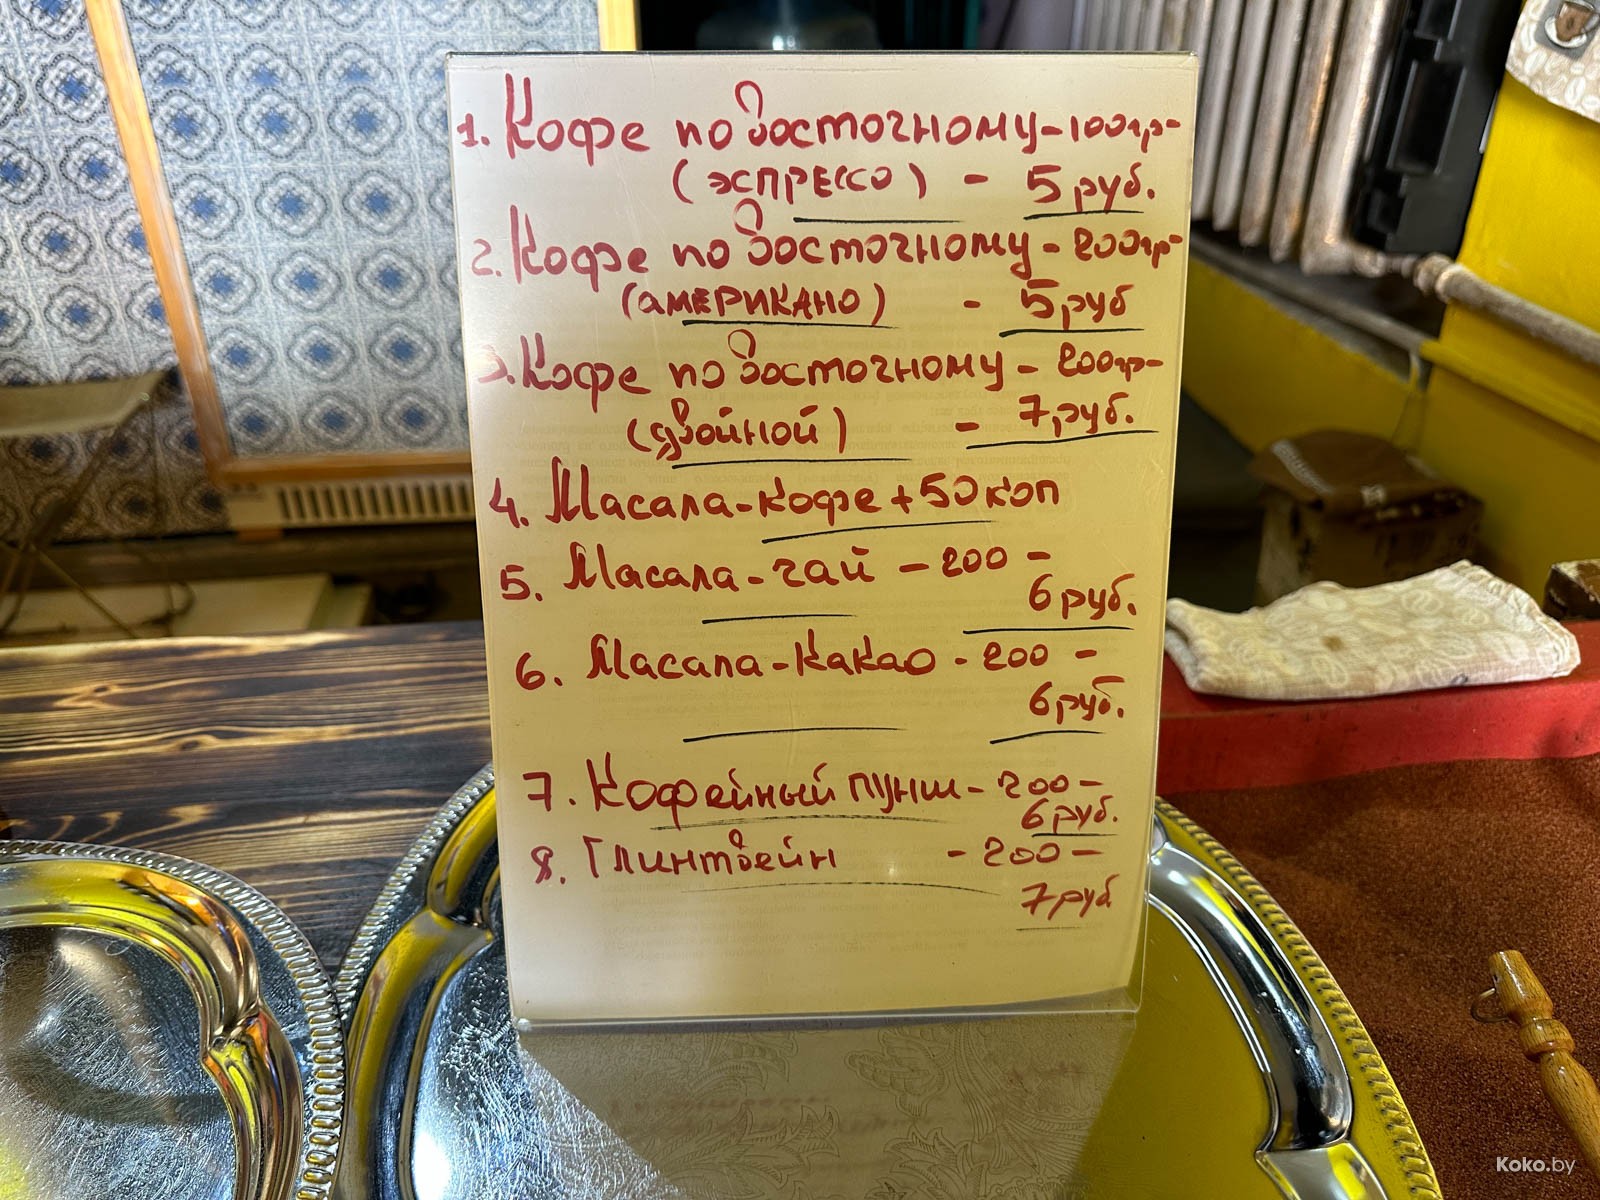 1. Кофе по восточному - 100гр -
(эспрессо) - 5 руб.
2. Кофе по восточному - 200гр -
(американо) - 5 руб
3. Кофе по восточному - 200гр -
(двойной) - 7 руб.
4. Масала-кофе + 50 коп
5. Масала-чай - 200 -
6 руб.
6. Масала-какао - 200 -
6 руб.
7. Кофейный пунш - 200 -
6 руб.
8. Глинтвейн - 200 -
7 руб
Koko.by